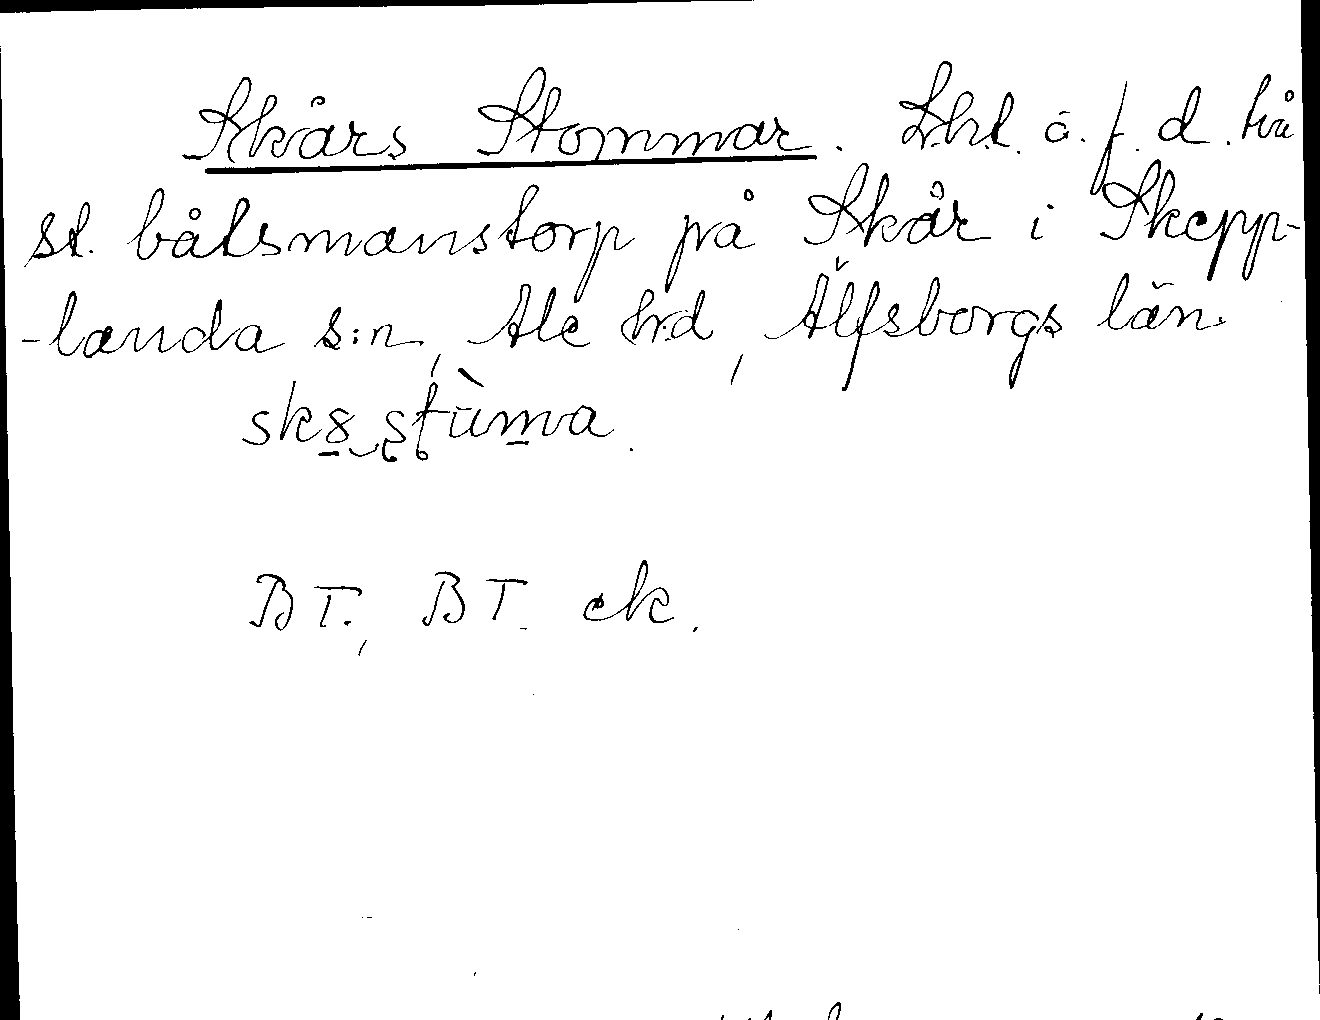 Skårs Stommar. Lht. ä. f. d. två
st. båtsmanstorp på Skår i Skepp-
-landa s:n, Ale hrd, Älfsborgs län.
BT., BT. ek.